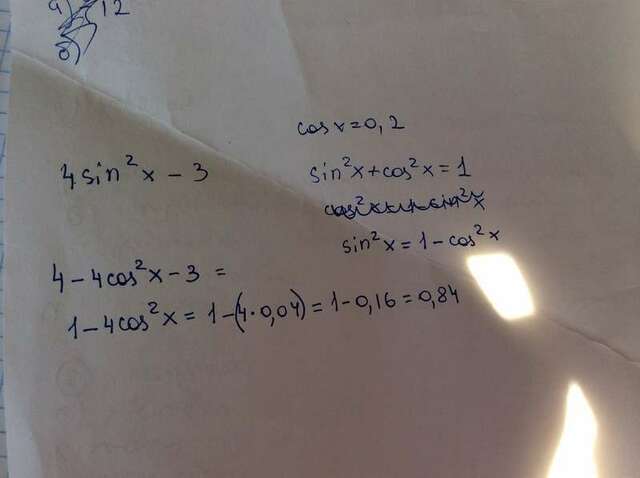 а) 12
б)
cos x = 0,2
4 sin²x − 3
sin²x + cos²x = 1
sin²x = 1 − cos²x
4 − 4cos²x − 3 =
1 − 4cos²x = 1 − (4 · 0,04) = 1 − 0,16 = 0,84